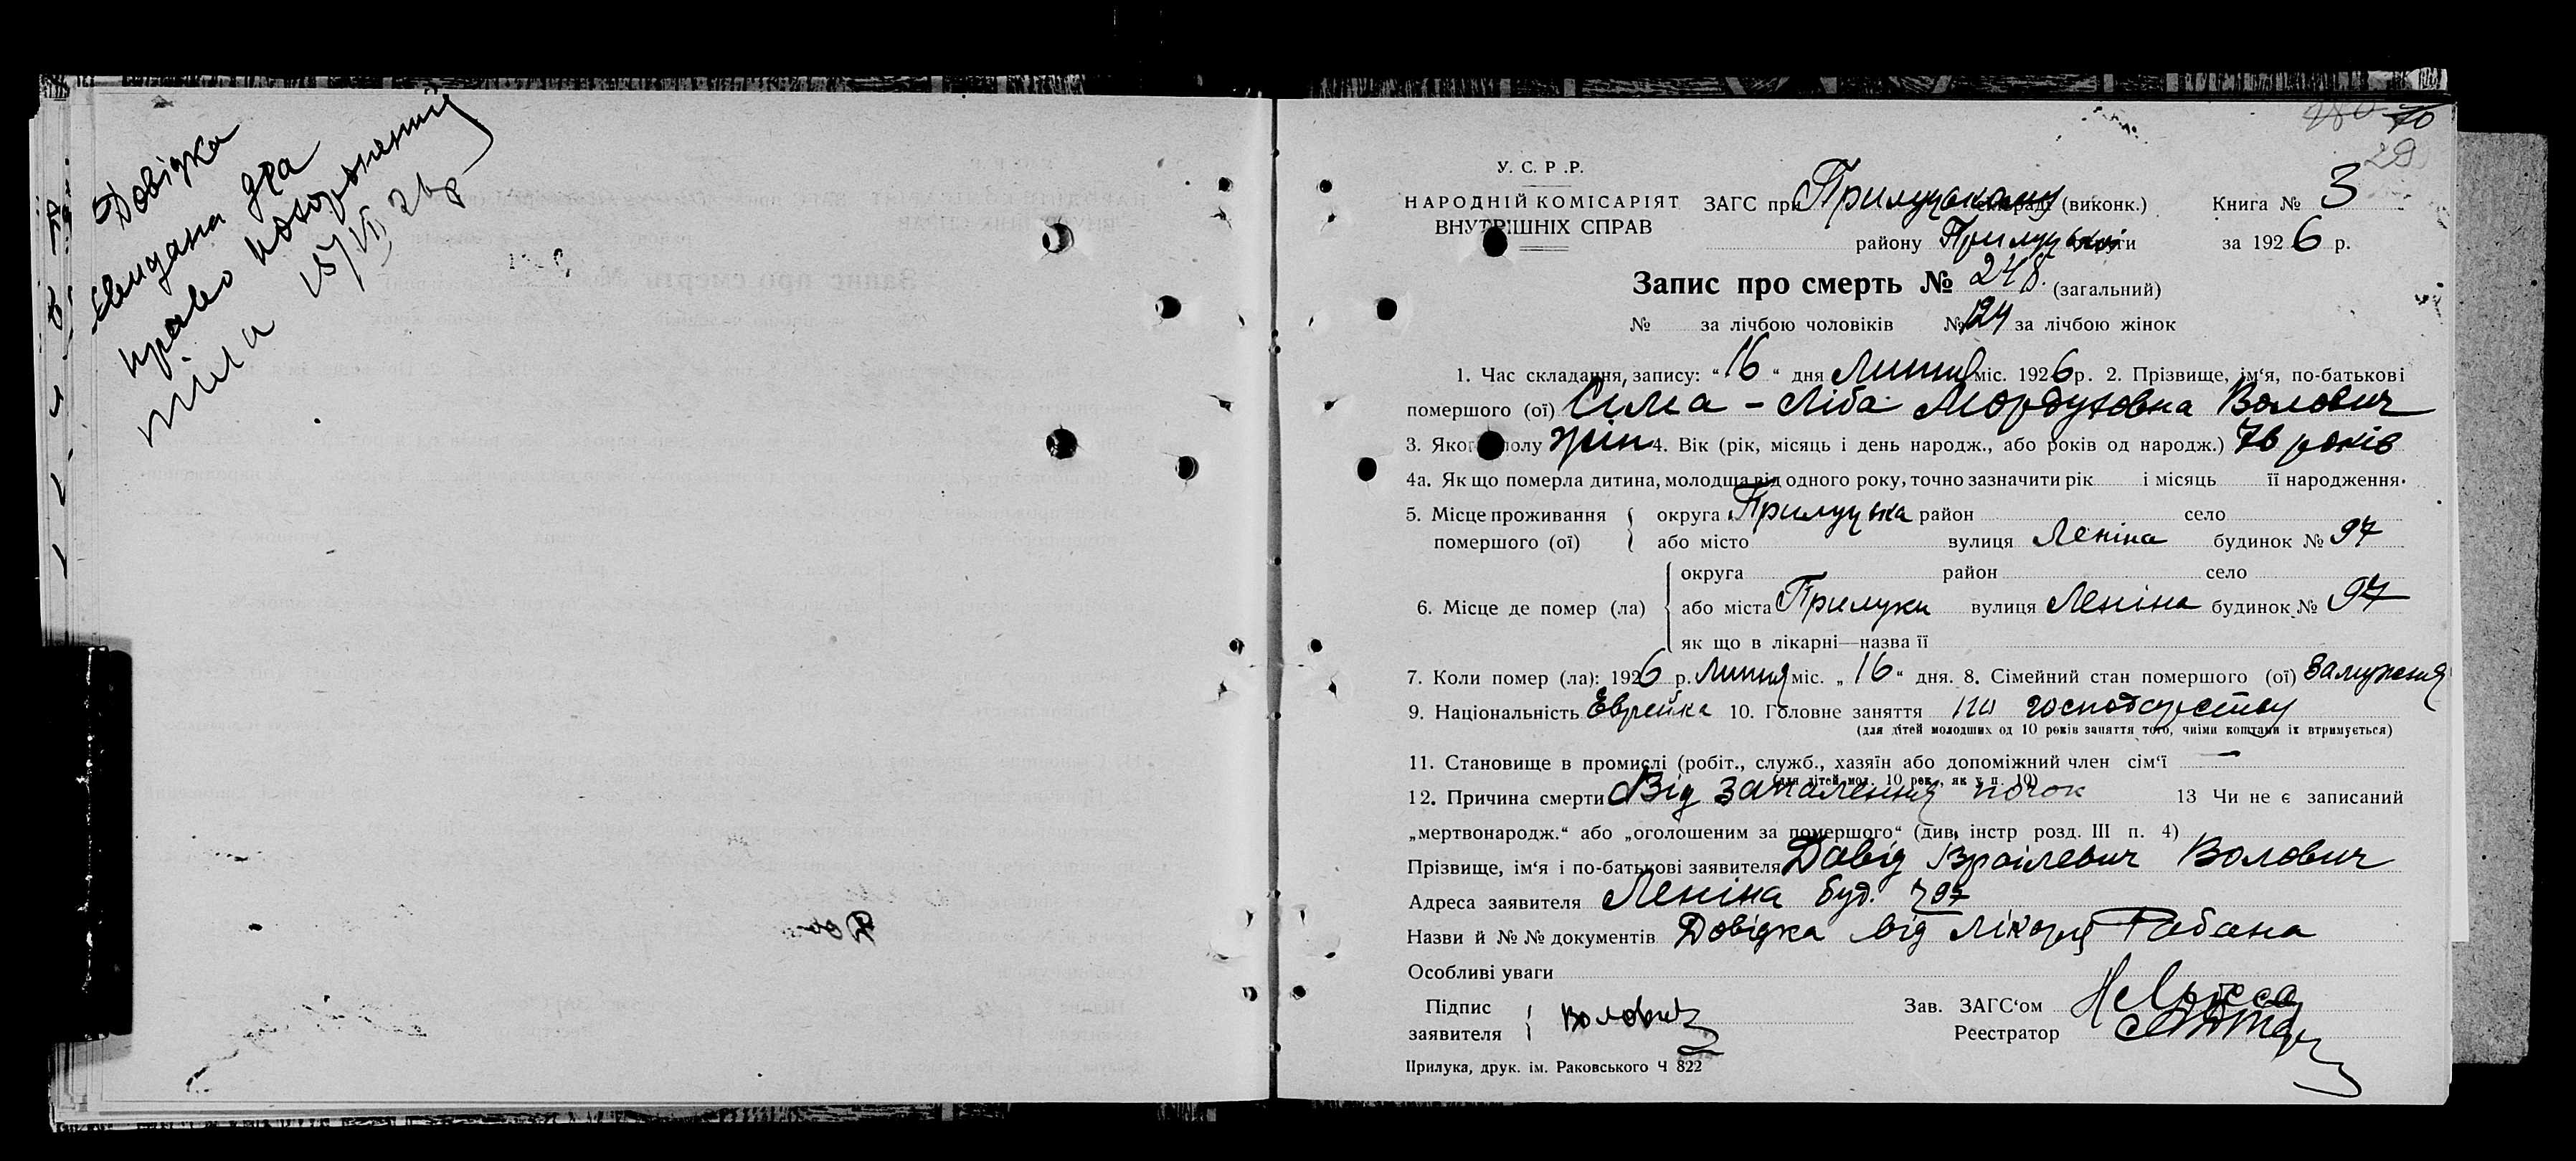 Довідка
видана для
право похоронення
тіла 15/VII 26 р
280 70
29
У. С. Р .Р.
НАРОДНІЙ КОМІСАРІЯТ
ВНУТРІШНІХ СПРАВ
ЗАГС при Прилуцькому (виконк.) Книга № 3
району Прилуцької за 1926 р.
Запис про смерть № 248. (загальний)
№ за лічбою чоловіків № 124 за лічбою жінок
1. Час складання, запису: "16" дня Липня міс. 1926 р. 2. Прізвище, ім'я, по-батькові
помершого (ої) Сима - Ліба Мордуховна Волович
3. Якого полу жін 4. Вік (рік, місяць і день народж., або років од народж.) 76 років
4а. Як що померла дитина, молодша від одного року, точно зазначити рік і місяць її народження.
5. Місце проживання помершого (ої) { округа Прилуцька район село
або місто вулиця Леніна будинок № 97
округа район село
6. Місце де помер (ла) { або міста Прилуки вулиця Леніна будинок № 97
як що в лікарні—назва її
7. Коли помер (ла): 1926 р. Липня міс. „16" дня. 8. Сімейний стан помершого (ої) Замужня
9. Національність Еврейка 10. Головне заняття по господарству
(для дітей молодших од 10 років заняття того, чиїми коштами їх втримується)
11. Становище в промислі (робіт., служб., хазяїн або допоміжний член сім'ї —
(для дітей мол. 10 рок., як у п. 10)
12. Причина смерти Від запалення почок 13 Чи не є записаний
„мертвонародж." або „оголошеним за помершого" (див, інстр розд. III п. 4)
Прізвище, ім'я і по-батькові заявителя Давід Ізраілевич Волович
Адреса заявителя Леніна буд. 97
Назви й №№ документів Довідка від лікаря Рабана
Особливі уваги
Підпис заявителя { Волович
Зав. ЗАГС'ом
Реестратор
Прилука, друк. ім. Раковського Ч 822